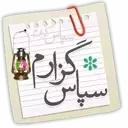 سپاس
گزارم